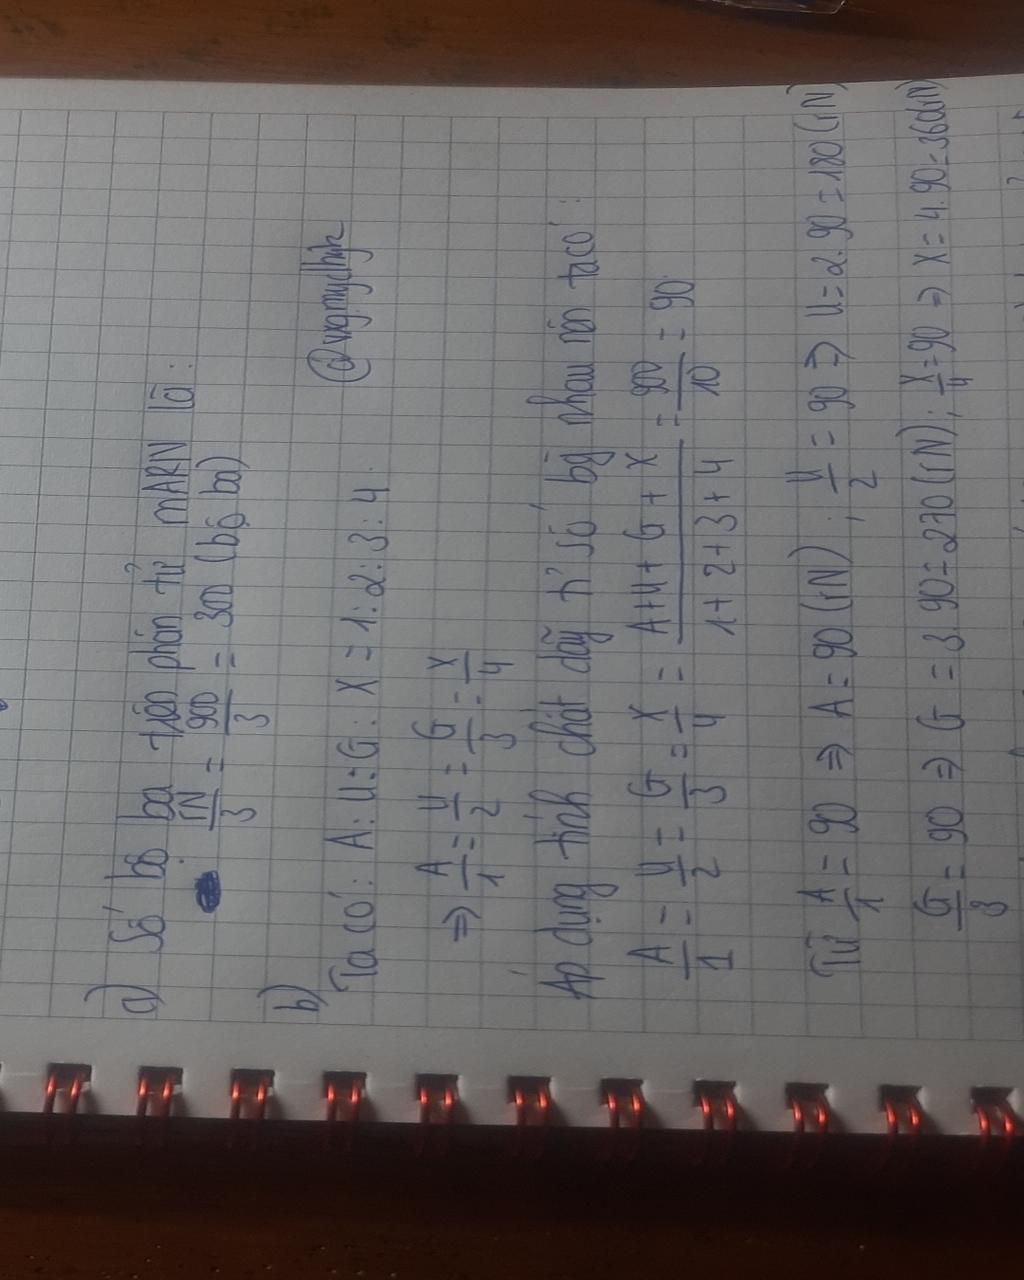 a) Số bộ ba trên phân tử mARN là:
rN/3 = 900/3 = 300 (bộ ba)
b) @vxg.mydhyk
Ta có: A : U : G : X = 1 : 2 : 3 : 4
=> A/1 = U/2 = G/3 = X/4
Áp dụng tính chất dãy tỉ số bg nhau nên ta có:
A/1 = U/2 = G/3 = X/4 = A+U+G+X/1+2+3+4 = 900/10 = 90
Từ A/1 = 90 => A = 90 (rN) ; U/2 = 90 => U = 2.90 = 180 (rN)
G/3 = 90 => G = 3.90 = 270 (rN) ; X/4 = 90 => X = 4.90 = 360(rN)